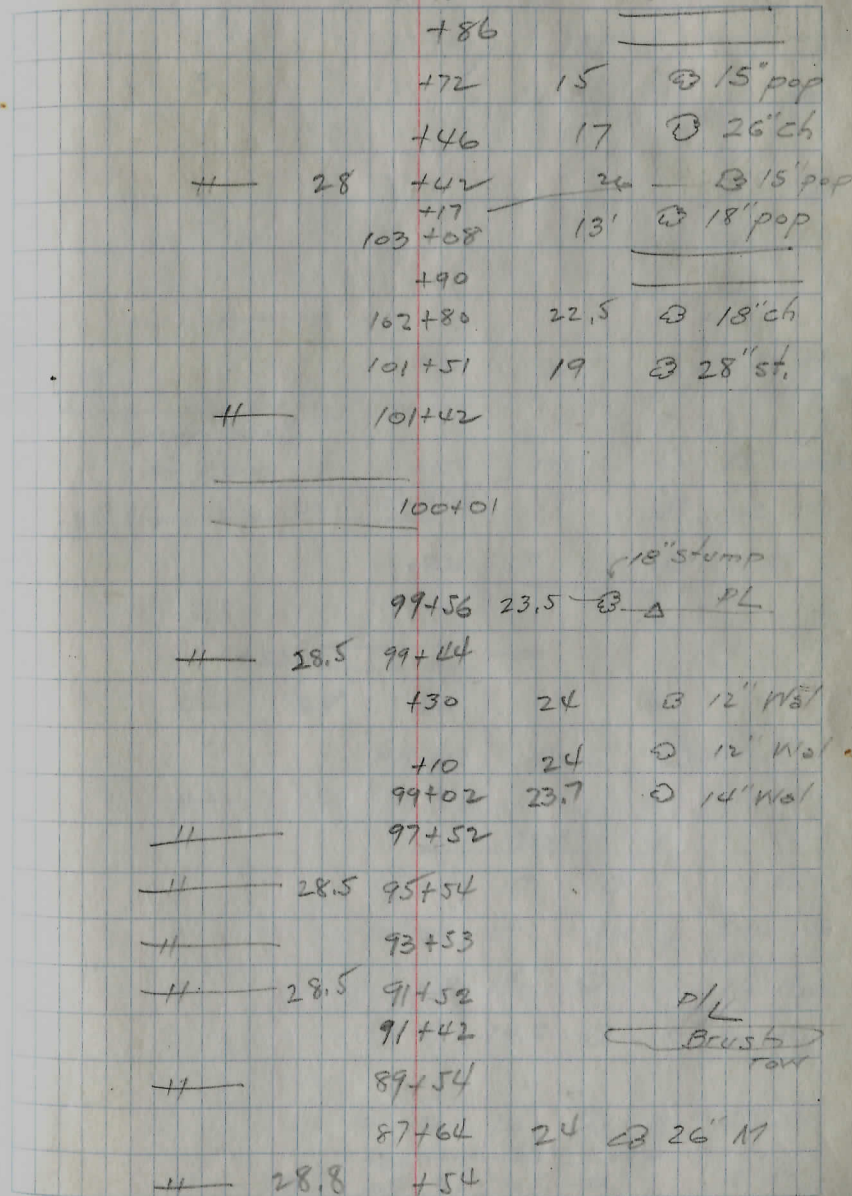 +86
+72 15 15" pop
+46 17 26" ch
28 +42 26 15" pop
+17
103 +08 13' 18" pop
+90
102+80 22.5 18" ch
101+51 19 28" st.
101+42
100+01
18" stump
99+56 23.5 PL
28.5 99+44
+30 24 12" Wal
+10 24 12" Wal
99+02 23.7 14" Wal
97+52
28.5 95+54
93+53
28.5 91+52 P/L
91+42 Brush
row
89+54
87+64 24 26" M
28.8 +54